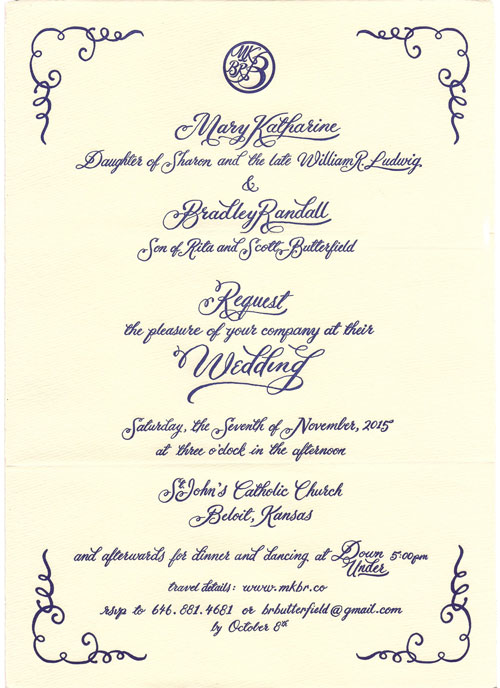 MK
BR B
Mary Katharine
Daughter of Sharon and the late William R Ludwig
&
Bradley Randall
Son of Rita and Scott Butterfield
Request
the pleasure of your company at their
Wedding
Saturday, the Seventh of November, 2015
at three o'clock in the afternoon
St. John's Catholic Church
Beloit, Kansas
and afterwards for dinner and dancing at Down Under 5:00pm
travel details: www.mkbr.co
rsvp to 646.881.4681 or brbutterfield@gmail.com
by October 8th